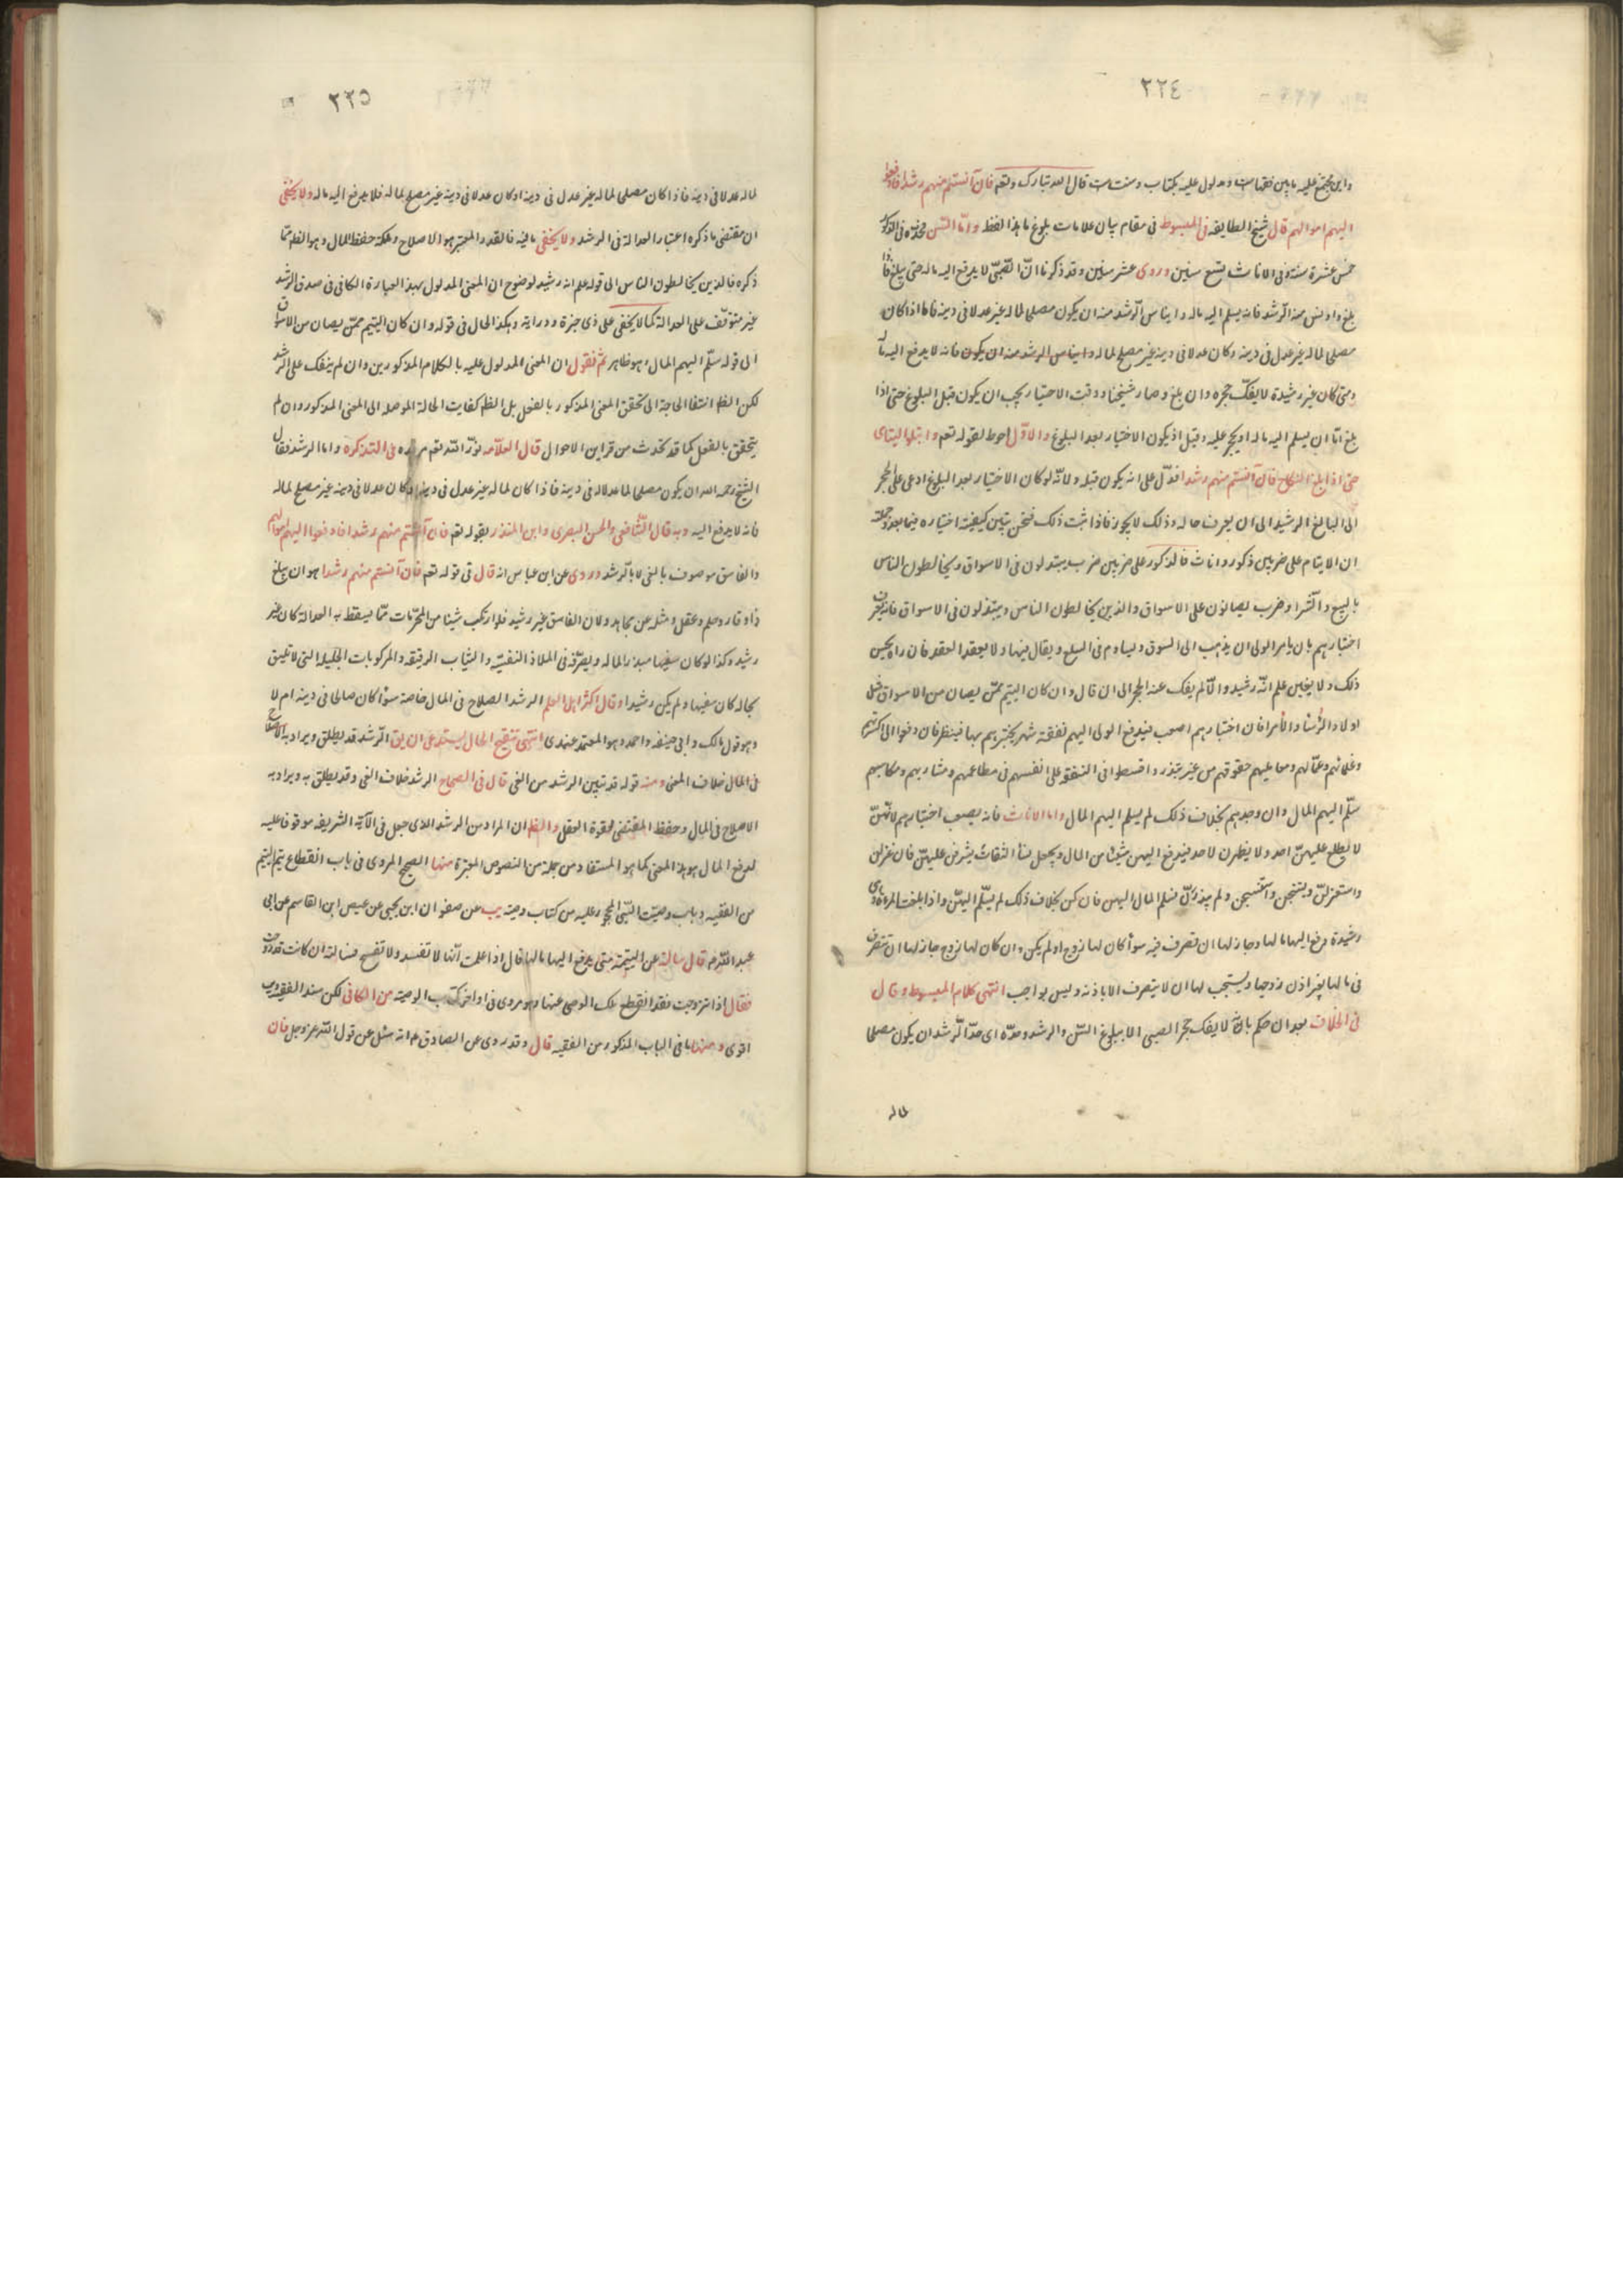 ٢٢٤
واين مجمع عليه ما بين فقهائنا ومدلول عليه بكتاب وسنت قال الله تبارك وتعم فان آنستم منهم رشدا فادفعوا
اليهم اموالهم قال شيخ الطايفه في المبسوط في مقام بيان علامات بلوغ ما هذا لفظه واما السن فحده في الذكور
خمس عشرة سنة وفي الاناث تسع سنين وروى عشر سنين وقد ذكرنا ان الصبي لا يدفع اليه ماله حتى يبلغ فاذا
بلغ واونس منه الرشد فانه يسلم اليه ماله وايناس الرشد منه ان يكون مصلحا لماله عدلا في دينه فاما اذا كان
مصلحا لماله غير عدل في دينه وكان عدلا في دينه غير مصلح لماله وايناس الرشد منه ان يكون فانه لا يدفع اليه ماله
ومتى كان غير رشيد لا يفك حجره وان بلغ وصار شيخا ووقت الاختيار يجب ان يكون قبل البلوغ حتى اذا
بلغ اما ان يسلم اليه ماله او يحجر عليه وقيل اذ يكون الاختيار بعد البلوغ والاول احوط لقوله تعم وابتلوا اليتامى
حتى اذا بلغوا النكاح فان آنستم منهم رشدا فدل على انه يكون قبله ولانه لو كان الاختيار بعد البلوغ ادى الى الحجر
الى البالغ الرشيد الى ان يعرف حاله وذلك لا يجوز فاذا ثبت ذلك فنحن نبين كيفية اختياره فيما بعد وجملته
ان الايتام على ضربين ذكور واناث فالذكور على ضربين ضرب يبتذلون في الاسواق ويخالطون الناس
بالبيع والشرا وضرب يصانون على الاسواق والذين يخالطون الناس ويبتذلون في الاسواق فانه يعرف
اختبارهم بان يامر الولى ان يذهب الى السوق ويساوم في السلع ويقال فيها ولا يعقد العقد فان راه يحسن
ذلك ولا يغبن علم انه رشيد والا لم يفك عنه الحجر الى ان قال وان كان اليتيم ممن يصان من الاسواق مثل
اولاد الرؤسا والامرا فان اختبارهم اصعب فيدفع الولى اليهم نفقة شهر يختبرهم بها فينظر فان دفعوا الى اكرتهم
وغلمانهم وعمالهم ومعامليهم حقوقهم من غير تبذير واقسطوا في النفقه على انفسهم في مطاعمهم ومشاربهم ومكاسبهم
سلم اليهم المال وان وجدهم بخلاف ذلك لم يسلم اليهم المال واما الاناث فانه يصعب اختبارهم لانهن
لا يطلع عليهن احد ولا يظهرن لاحد فيدفع اليهن شيئا من المال ويجعل نسأ الثقات يشرفن عليهن فان غزلن
واستغزلن وينسجن واستنسجن ولم يبذرن سلم المال اليهن فان كن بخلاف ذلك لم يسلم اليهن واذا بلغت المراة وهى
رشيدة دفع اليها مالها وجاز لها ان تصرف فيه سوأ كان لها زوج او لم يكن وان كان لها زوج جاز لها ان تتصرف
في مالها بغير اذن زوجها ويستحب لها ان لا يتصرف الا باذنه وليس بواجب انتهى كلام المبسوط وقال
في الخلاف بعد ان حكم بانه لا يفك حجر الصبى الا ببلوغ السن والرشد وحده اى حد الرشد ان يكون مصلحا
لما
٢٢٥
لماله عدلا في دينه فاذا كان مصلحا لماله غير عدل في دينه او كان عدلا في دينه غير مصلح لماله فلا يدفع اليه ماله ولا يخفى
ان مقتضى ما ذكره اعتبار العدالة في الرشد ولا يخفى ما فيه فالقدر المعتبر هو الاصلاح وملكة حفظ المال وهو الظم مما
ذكره فالذين يخالطون الناس الى قوله علم انه رشيد لوضوح ان المعنى المدلول بهذا العبارة الكافى في صدق الرشد
غير متوقف على العدالة كما لا يخفى على ذى خبرة ودراية وهكذا الحال في قوله وان كان اليتيم ممن يصان من الاسواق
الى قوله سلم اليهم المال وهو ظاهر ثم نقول ان المعنى المدلول عليه بالكلام المذكورين وان لم ينفك على الرشد
لكن الظم انتفا الحاجة الى تحقق المعنى المذكور بالفعل بل الظم كفايت الحالة الموصلة الى المعنى المذكور وان لم
يتحقق بالفعل كما قد تحدث من قراين الاحوال قال العلامه نور الله تعم مرقده في التذكره واما الرشد فقال
الشيخ رحمه الله ان يكون مصلحا لما عدلا في دينه فاذا كان لماله غير عدل في دينه او كان عدلا في دينه غير مصلح لماله
فانه لا يدفع اليه وبه قال الشافعى والحسن البصرى وابن المنذر لقوله تعم فان آنستم منهم رشدا فادفعوا اليهم اموالهم
والفاسق موصوف بالغى لا بالرشد وروى عن ابن عباس انه قال في قوله تعم فان آنستم منهم رشدا هو ان يبلغ
ذا وقار وحلم وعقل ومثله عن مجاهد ولان الفاسق غير رشيد فلو ارتكب شيئا من المحرمات مما يسقط به العدالة كان غير
رشيد وكذا لو كان سفيها مبذرا لماله ويصرفه في الملاذ النفسيه والثياب الرقيقه والمركوبات الجليلة التى لا تليق
بحاله كان سفيها ولم يكن رشيدا وقال اكثر اهل العلم الرشد الصلاح في المال خاصة سوأ كان صالحا في دينه ام لا
وهو قول مالك وابى حنيفه واحمد وهو المعتمد عندى انتهى تنقيح الحال يستدعى ان يق الرشد قد يطلق ويراد به الاصلاح
في المال خلاف المعنى ومنه قوله قد تبين الرشد من الغى قال في الصحاح الرشد خلاف الغى وقد يطلق به ويراد به
الاصلاح في المال وحفظ المقتضى لقوة العقل والظم ان المراد من الرشد الذى جعل في الآية الشريفه موقوفا عليه
لدفع المال هو هذا المعنى كما هو المستفاد من جملة من النصوص المعتبرة منها الصحيح المروى في باب انقطاع يتم اليتيم
من الفقيه وباب وصيت الصبى المحجور عليه من كتاب وصيه يب عن صفوان ابن يحيى عن عيص ابن القاسم عن ابى
عبد الله ع قال سالته عن اليتيمه متى يدفع اليها مالها قال اذا علمت انها لا تفسد ولا تضيع فسالته ان كانت قد زوجت
فقال اذا تزوجت فقد انقطع ملك الوصى عنها وهو مروى في اواخر كتاب الوصيه من الكافى لكن سند الفقيه ويب
اقوى ومنها ما في الباب المذكور من الفقيه قال وقد روى عن الصادق ع انه سئل عن قول الله عز وجل فان